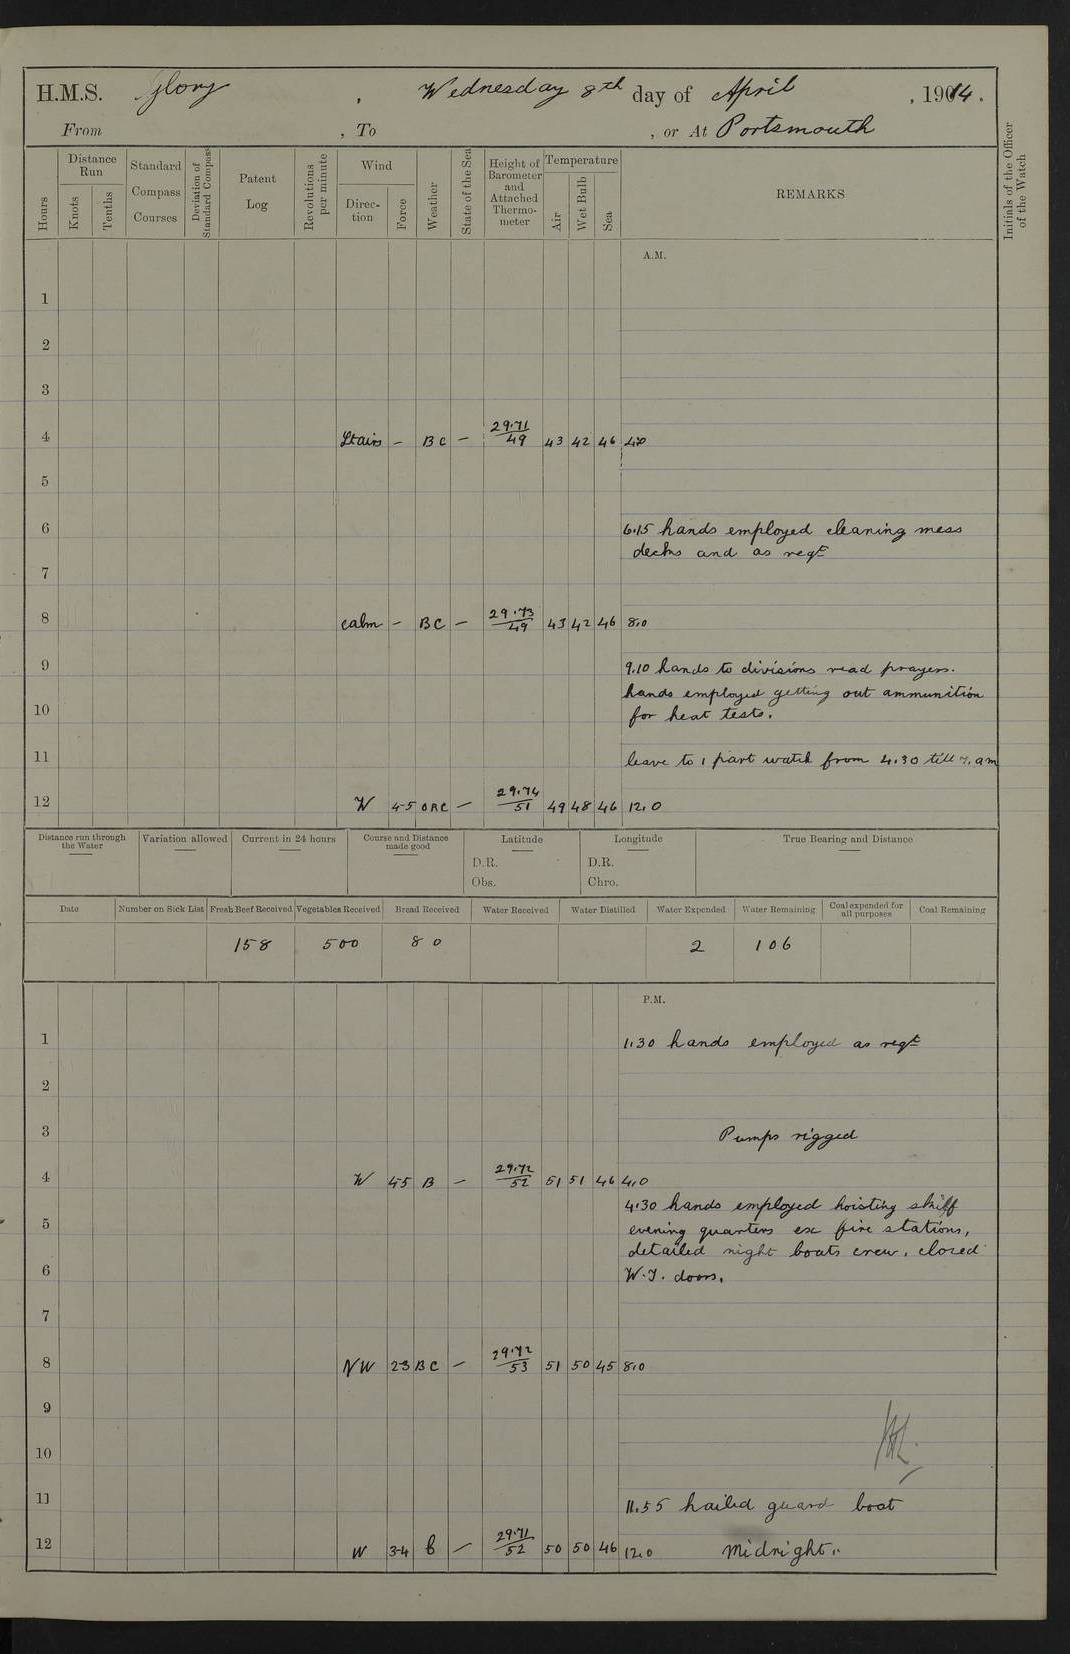 H.M.S. Glory, Wednesday 8th day of April, 1914.
From , To , or At Portsmouth
Hours
Distance Run
Knots
Tenths
Standard Compass Courses
Deviation of Standard Compass
Patent Log
Revolutions per minute
Wind
Direction
Force
Weather
State of the Sea
Height of Barometer and Attached Thermometer
Temperature
Air
Wet Bulb
Sea
REMARKS
Initials of the Officer of the Watch
A.M.
1
2
3
4 — BC — 29.71/49 43 42 46 4.0
5
6 6.15 hands employed cleaning mess
decks and as reqd
7
8 calm — BC — 29.73/49 43 42 46 8.0
9 9.10 hands to divisions read prayers.
hands employed getting out ammunition
10 for heat tests.
11 leave to 1 part watch from 4.30 till 7. am
12 W 4-5 ORC — 29.74/51 49 48 46 12.0
Distance run through the Water
Variation allowed
Current in 24 hours
Course and Distance made good
Latitude
D.R.
Obs.
Longitude
D.R.
Chro.
True Bearing and Distance
Date Number on Sick List Fresh Beef Received Vegetables Received Bread Received Water Received Water Distilled Water Expended Water Remaining Coal expended for all purposes Coal Remaining
158 500 80 2 106
P.M.
1 1.30 hands employed as reqd
2
3 Pumps rigged
4 W 4-5 B — 29.72/52 51 51 46 4.0
4.30 hands employed hoisting skiff
5 evening quarters ex fire stations,
detailed night boats crew, closed
6 W.T. doors.
7
8 NW 2-3 BC — 29.72/53 51 50 45 8.0
9
10
11 11.55 hailed guard boat
12 W 3-4 b — 29.71/52 50 50 46 12.0 Midnight.